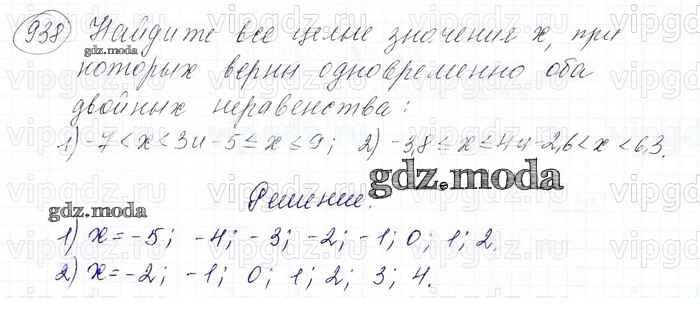 938 Найдите все целые значения x, при
gdz.moda
которых верны одновременно оба
двойных неравенства:
1) -7 < x < 3 и -5 ≤ x ≤ 9; 2) -3,8 ≤ x ≤ 4 и -2,6 < x < 6,3.
gdz.moda
Решение.
gdz.moda
1) x = -5; -4; -3; -2; -1; 0; 1; 2.
2) x = -2; -1; 0; 1; 2; 3; 4.